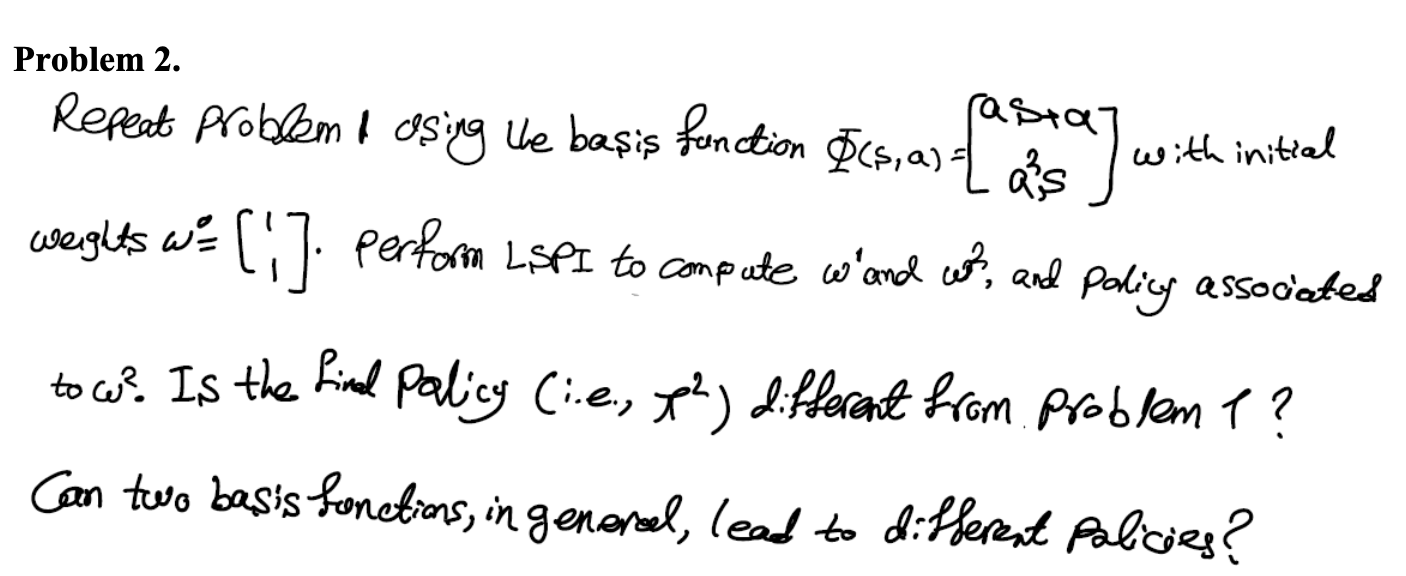 Problem 2.
Repeat problem 1 using the basis function Φ(s,a) = [as+a; a²s] with initial
weights w⁰ = [1; 1]. perform LSPI to compute w¹ and w², and policy associated
to w². Is the final policy (i.e., π²) different from problem 1?
Can two basis functions, in general, lead to different policies?